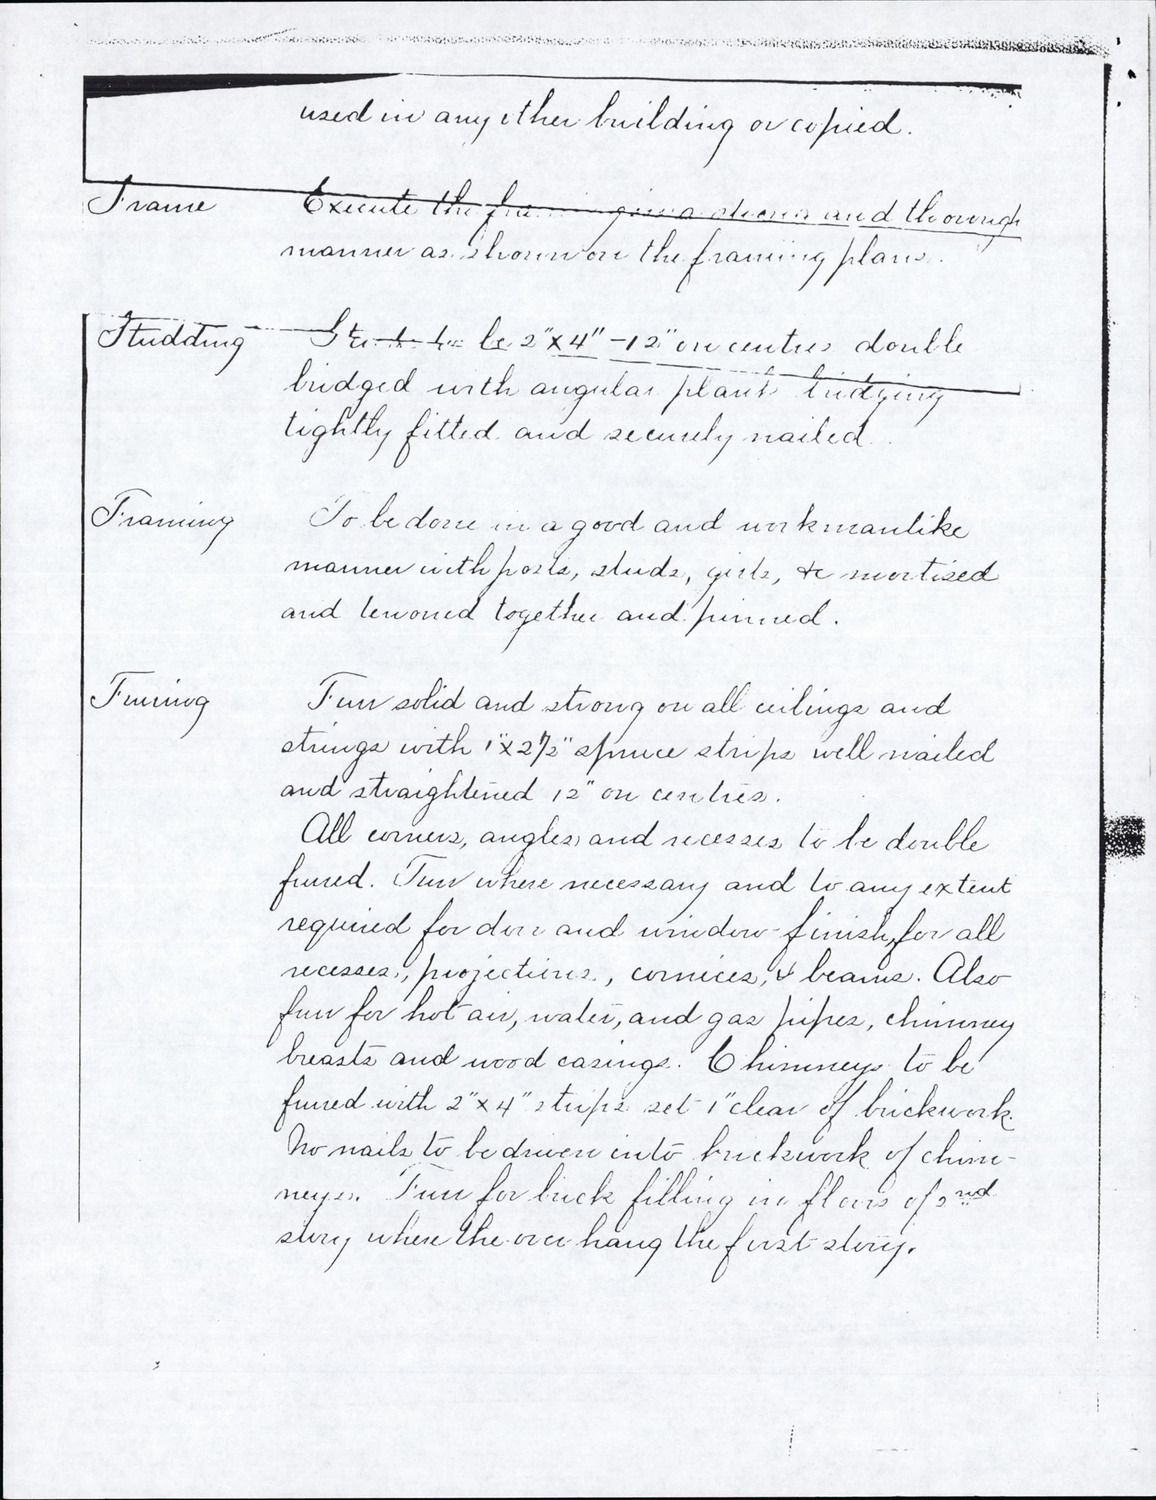 used in any other building or copied.
Frame Execute the framing in a strong and thorough
manner as shown on the framing plans.
Studding Studs to be 2"x4" - 12" on centres double
bridged with angular plank bridging
tightly fitted and securely nailed.
Framing To be done in a good and workmanlike
manner with posts, studs, girts, &c mortised
and tenoned together and pinned.
Furring Furr solid and strong on all ceilings and
strings with 1"x2 1/2" spruce strips well nailed
and straightened 12" on centres.
All corners, angles and recesses to be double
furred. Furr where necessary and to any extent
required for door and window finish, for all
recesses, projections, cornices, & beams. Also
furr for hot air, water, and gas pipes, chimney
breasts and wood casings. Chimneys to be
furred with 2"x4" strips set 1" clear of brickwork.
No nails to be driven into brickwork of chim-
neys. Furr for brick filling in floors of 2nd
story where the over hang the first story.